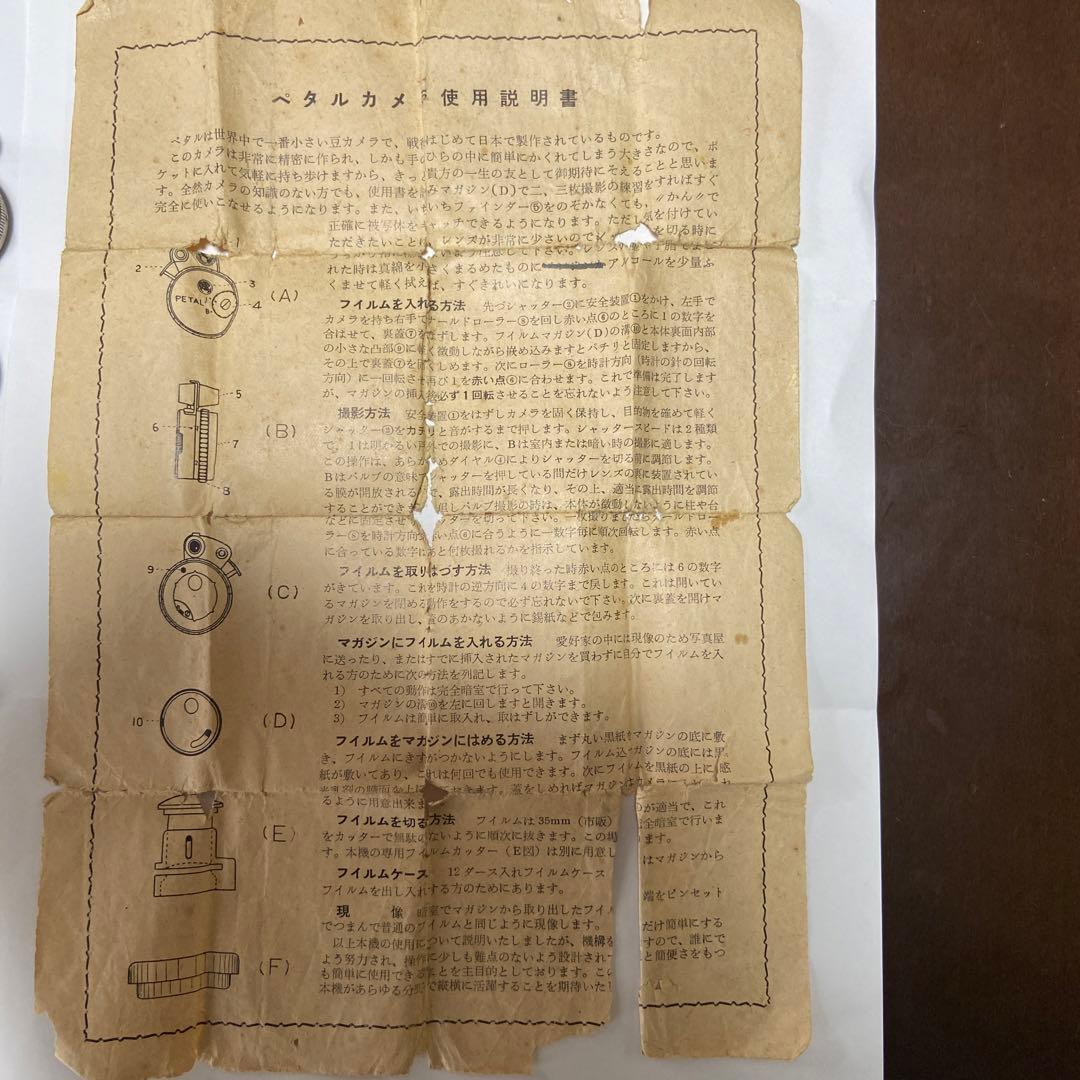 ペタルカメラ使用説明書
ペタルは世界中で一番小さい豆カメラで、戦後はじめて日本で製作されているものです。
このカメラは非常に精密に作られ、しかも手のひらの中に簡単にかくれてしまう大きさなので、ポ
ケットに入れて気軽に持ち歩けますから、きっと貴方の一生の友として御期待にそえることと思いま
す。全然カメラの知識のない方でも、使用書を みマガジン(D)で二、三枚撮影の練習をすればすぐ
完全に使いこなせるようになります。また、いちいちファインダー⑤をのぞかなくても、〃かん〃で
正確に被写体をキャッチできるようになります。ただし気を付けてい
ただきたいことは、レンズが非常に少さいので を切る時に
ないよう注意して下さい。レンズが
れた時は真綿を小さくまるめたものに アルコールを少量ふ
くませて軽く拭えば、すぐきれいになります。
1
2
3
PETAL
B
4
(A)
フイルムを入れる方法 先づシャッター②に安全装置①をかけ、左手で
カメラを持ち右手でナールドローラー⑧を回し赤い点⑥のところに1の数字を
合はせて、裏蓋⑦をはずします。フイルムマガジン(D)の溝⑩と本体裏面内部
の小さな凸部⑨に軽く微動しながら嵌め込みますとパチリと固定しますから、
その上で裏蓋⑦を固くしめます。次にローラー⑧を時計方向(時計の針の回転
方向)に一回転させ再び1を赤い点⑥に合わせます。これで準備は完了します
が、マガジンの挿入後必ず1回転させることを忘れないよう注意して下さい。
5
6
7
8
(B)
撮影方法 安全装置①をはずしカメラを固く保持し、目的物を確めて軽く
シャッター②をカチリと音がするまで押します。シャッタースピードは2種類
で、1は明かるい戸外での撮影に、Bは室内または暗い時の撮影に適します。
この操作は、あらかじめダイヤル④によりシャッターを切る前に調節します。
Bはバルブの意味でシャッターを押している間だけレンズの裏に装置されてい
る膜が開放されるので、露出時間が長くなり、その上、適当に露出時間を調節
することができます。但しバルブ撮影の時は、本体が微動しないように柱や台
などに固定させてシャッターを切って下さい。一枚撮りますからナールドロー
ラー⑧を時計方向に赤い点⑥に合うように一数字毎に順次回転します。赤い点
に合っている数字はあと何枚撮れるかを指示しています。
9
(C)
フイルムを取りはづす方法 撮り終った時赤い点のところには6の数字
がきています。これを時計の逆方向に4の数字まで戻します。これは開いてい
るマガジンを閉める動作をするので必ず忘れないで下さい。次に裏蓋を開けマ
ガジンを取り出し、蓋のあかないように錫紙などで包みます。
マガジンにフイルムを入れる方法 愛好家の中には現像のため写真屋
に送ったり、またはすでに挿入されたマガジンを買わずに自分でフイルムを入
れる方のために次の方法を列記します。
1) すべての動作は完全暗室で行って下さい。
2) マガジンの溝⑩を左に回しますと開きます。
3) フイルムは簡単に取入れ、取はずしができます。
10
(D)
フイルムをマガジンにはめる方法 まず丸い黒紙をマガジンの底に敷
き、フイルムにきずがつかないようにします。フイルム込マガジンの底には黒
紙が敷いてあり、これは何回でも使用できます。次にフイルムを黒紙の上に感
光乳剤の膜面を上に おきます。蓋をしめればマガジンはカメラに
るように用意出来ま
(E)
フイルムを切る方法 フイルムは35mm(市販) が適当で、これ
をカッターで無駄のないように順次に抜きます。この場 完全暗室で行いま
す。本機の専用フイルムカッター(E図)は別に用意し ます。
フイルムケース 12ダース入れフイルムケース はマガジンから
フイルムを出し入れする方のためにあります。
現像 暗室でマガジンから取り出したフイル 端をピンセット
でつまんで普通のフイルムと同じように現像します。
以上本機の使用について説明いたしましたが、機構を だけ簡単にする
よう努力され、操作に少しも難点のないよう設計されて すので、誰にで
も簡単に使用できることを主目的としております。この と簡便さをもつ
本機があらゆる分野で縦横に活躍することを期待いたし
(F)